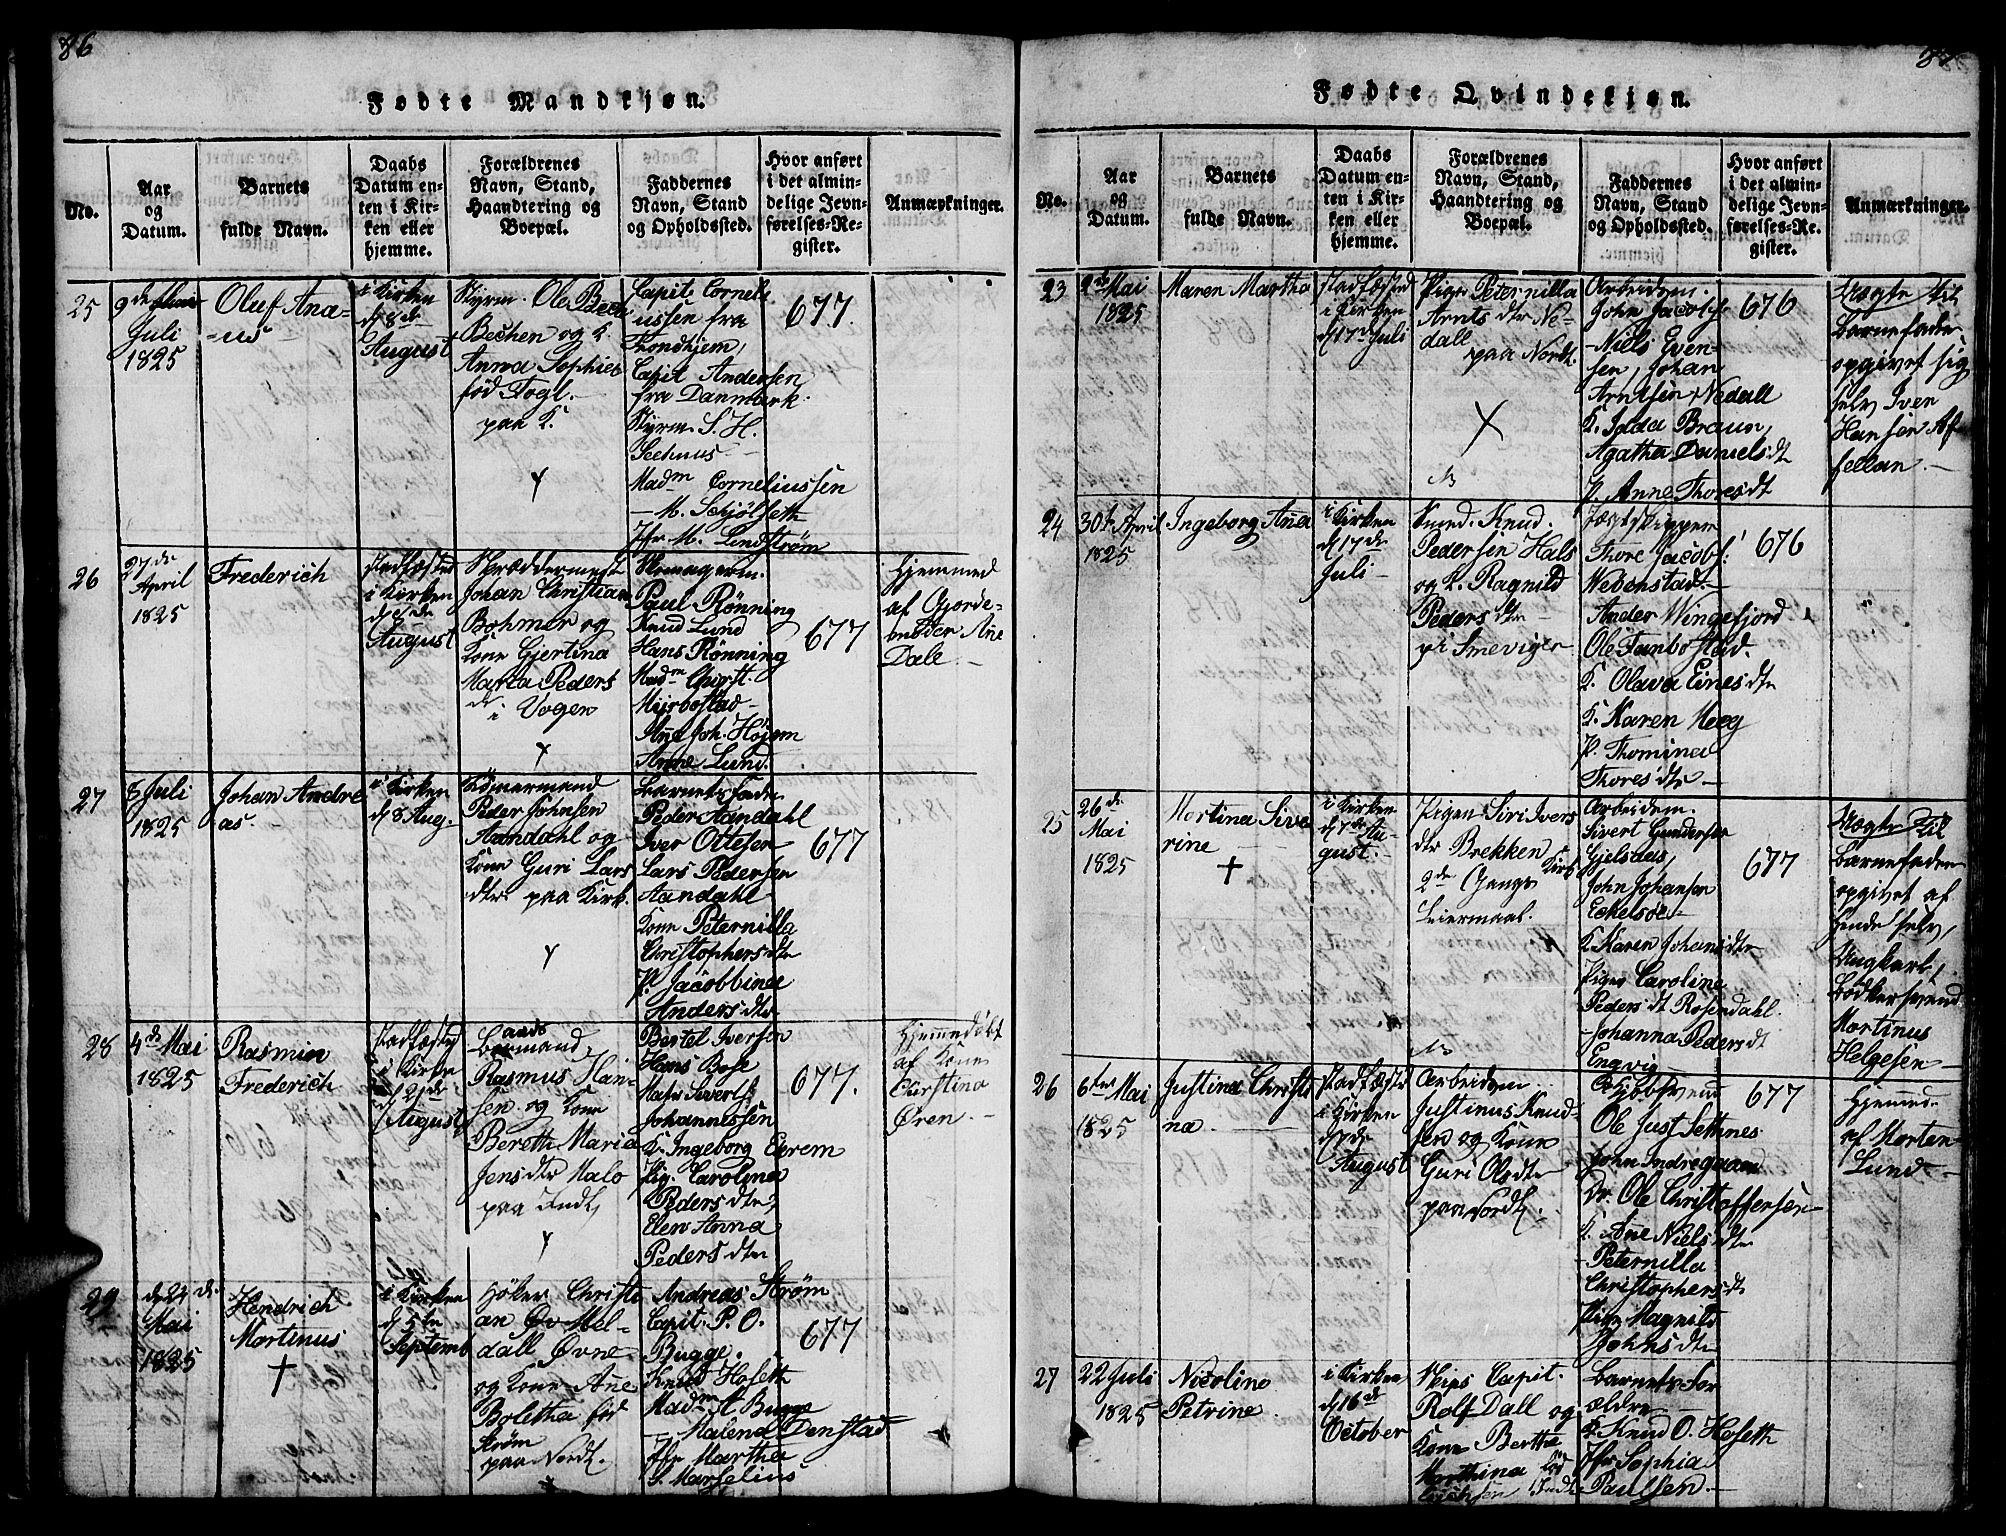 86
Fødte Mandkjøn.
No.
Aar
og
Datum.
Barnets
fulde Navn.
Daabs
Datum en-
ten i Kir-
ken eller
hjemme.
Forældrenes
Navn, Stand,
Haandtering og
Boepæl.
Faddernes
Navn, Stand
og Opholdssted.
Hvor anført
i det almin-
delige Jevn-
førelses-Re-
gister.
Anmærkninger.
25
9de
Juli
1825
Oluf Ana-
=us
i Kirken
d 8de
August
Styrm. Ole Bech
Bechen og K.
Anna Sophie
fød Fogl.
paa K.
Capit Corneli
ussen fra
Trondhjem,
Capit Andersen
fra Danmark.
Styrm. S. H.
Madm Corneliussen
- M. Schjølseth
Jfr M. Lindstrøm
677.
26
27de
April
1825
Frederich
Stadfæsted
i Kirken
d 8de
August
Skræddermester
Johan Christian
Bohmer og
Kone Gjertina
Maria Peders
dr i Vogen
Paul Rønning
Knud Lund
Hans Rønning
Madm Christ.
Myrbostad
Ane Joh. Højem
Anne Lund.
677
Hjemmed
af Gjorde-
moder Ane
Dall.
27
8 Juli
1825
Johan Andre
as.
i Kirken
d 8 Aug.
Peder Johnsen
Aandahl og
Kone Guri Lars
dtr paa Kirk.
Barnets fader
Peder Aandahl
Iver Ottesen
Lars Pedersen
Aandahl
Kone Peternilla
Christophers dtr
P. Jacobbina
Anders dtr
677
28
4de Mai
1825
Rasmin
Frederich
Stadfæsted
i Kirken
d 21de
August
Rasmus Han-
sen og Kone
Bereth Maria
Jens dtr Malo
paa Indl.
Bertel Iversen
Hans Bose
Mats Siverts
Johannessen
K. Ingeborg Eprem
Pig. Carolina
Peders dtr,
Elen Anna
Peders dtr
677.
Hjemmedøbt
af Kone
Christina
Øren.
29
de 24 de
Mai
1825
Hendrich
Mortinus
i Kirken
d 5te
Septemb
Høker Christi
an Øv Mel-
dall Øvne
og Kone Ane
Boletha fød
Strøm
paa Nordl.
Andreas Strøm
Capit. P. O.
Bugge.
Knud Hoseth
Madm A Bugge
- Malena Denstad
Jfr Martha
S. Marselius
677
87
Fødte Qvindekjøn.
No.
Aar
og
Datum.
Barnets
fulde Navn.
Daabs
Datum en-
ten i Kir-
ken eller
hjemme.
Forældrenes
Navn, Stand,
Haandtering og
Boepæl.
Faddernes
Navn, Stand
og Opholdssted.
Hvor anført
i det almin-
delige Jevn-
førelses-Re-
gister.
Anmærkninger.
23
2de Mai
1825
Maren Martha
Stadfæsted
i Kirken
d 17de Juli
Pigen Peternilla
Arnts dtr Ne-
dall
paa Nordl.
Arbeidsm.
John Jacobs.
- Niels Even-
sen, Johan
Arntsen Nedall
K. Inda Braun,
Agatha Daniels dt
P. Anne Thores dt
676
Uægte til
barnefader
opgivet sig
selv Iver
Hansen Af
sellan.
24
30te April
1825
Ingeborg Ana
i Kirken
d 17de
Juli
Kund. Knud.
Pedersen Hals
og K. Ragnild
Peders dtr
Jægtskipper
Thore Jacobs.
Wedenstad
Ander Wingefjord
Ole Tanbostad.
K. Olava Eines dtr
K. Karen Heeg
P. Thomina
Thores dtr
676
25
26de
Mai
1825
Mortina Sive
rine
i Kirken
d 7de Au-
gust.
Pigen Siri Ivers
dtr Brekken
2de Gangs
Leiermaal.
Arbeidsm.
Sivert Gundersen
Gjelsdal,
John Johansen
Eckelsøe
K. Karen Johans dtr
Pigen Carolina
Peders dt Rosendahl.
- Johanna Peders dt
Engvig
677
Uægte til
barnefader
opgivet af
hende selv,
Ungkarl,
Bødkersvend
Mortinus
Helgesen
26
6te Mai
1825
Justina Christi
na.
Stadfæsted
i Kirken
d 7de
August
Arbeidsm
Justinus Knud-
sen og Kone
Guri Ols dtr
paa Nordl.
Ole Just Sethnes
John Indregaard
Dr. Ole Christoffersen
K. Ane Niels dtr
- Peternilla
Christophers dt
Pigen Magnild
Johns dtr
677
Hjemmed.
af Morten
Lund
27
22 Juli
1825
Nicoline
Petrine
i Kirken
d 16de
October
Skips Capit.
Rolf Dall og
Kone Berthe
Marthina fød
Barnets for
ældre
K. Knud O. Hoseth
Jfr Sophia
Paulsen